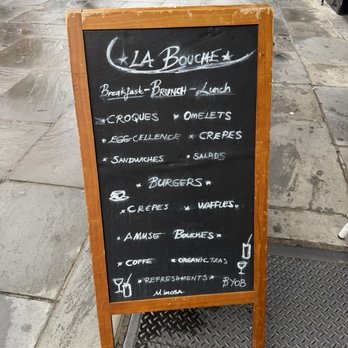 ★ LA BOUCHE ★
Breakfast - BRUNCH - Lunch
* CROQUES * OMELETS
* EGG CELLENCE * CREPES
* SANDWICHES * SALADS
* BURGERS *
* CREPES * WAFFLES *
* AMUSE BOUCHES *
* COFFE * ORGANIC TEAS
* REFRESHMENTS * BYOB
MIMOSA